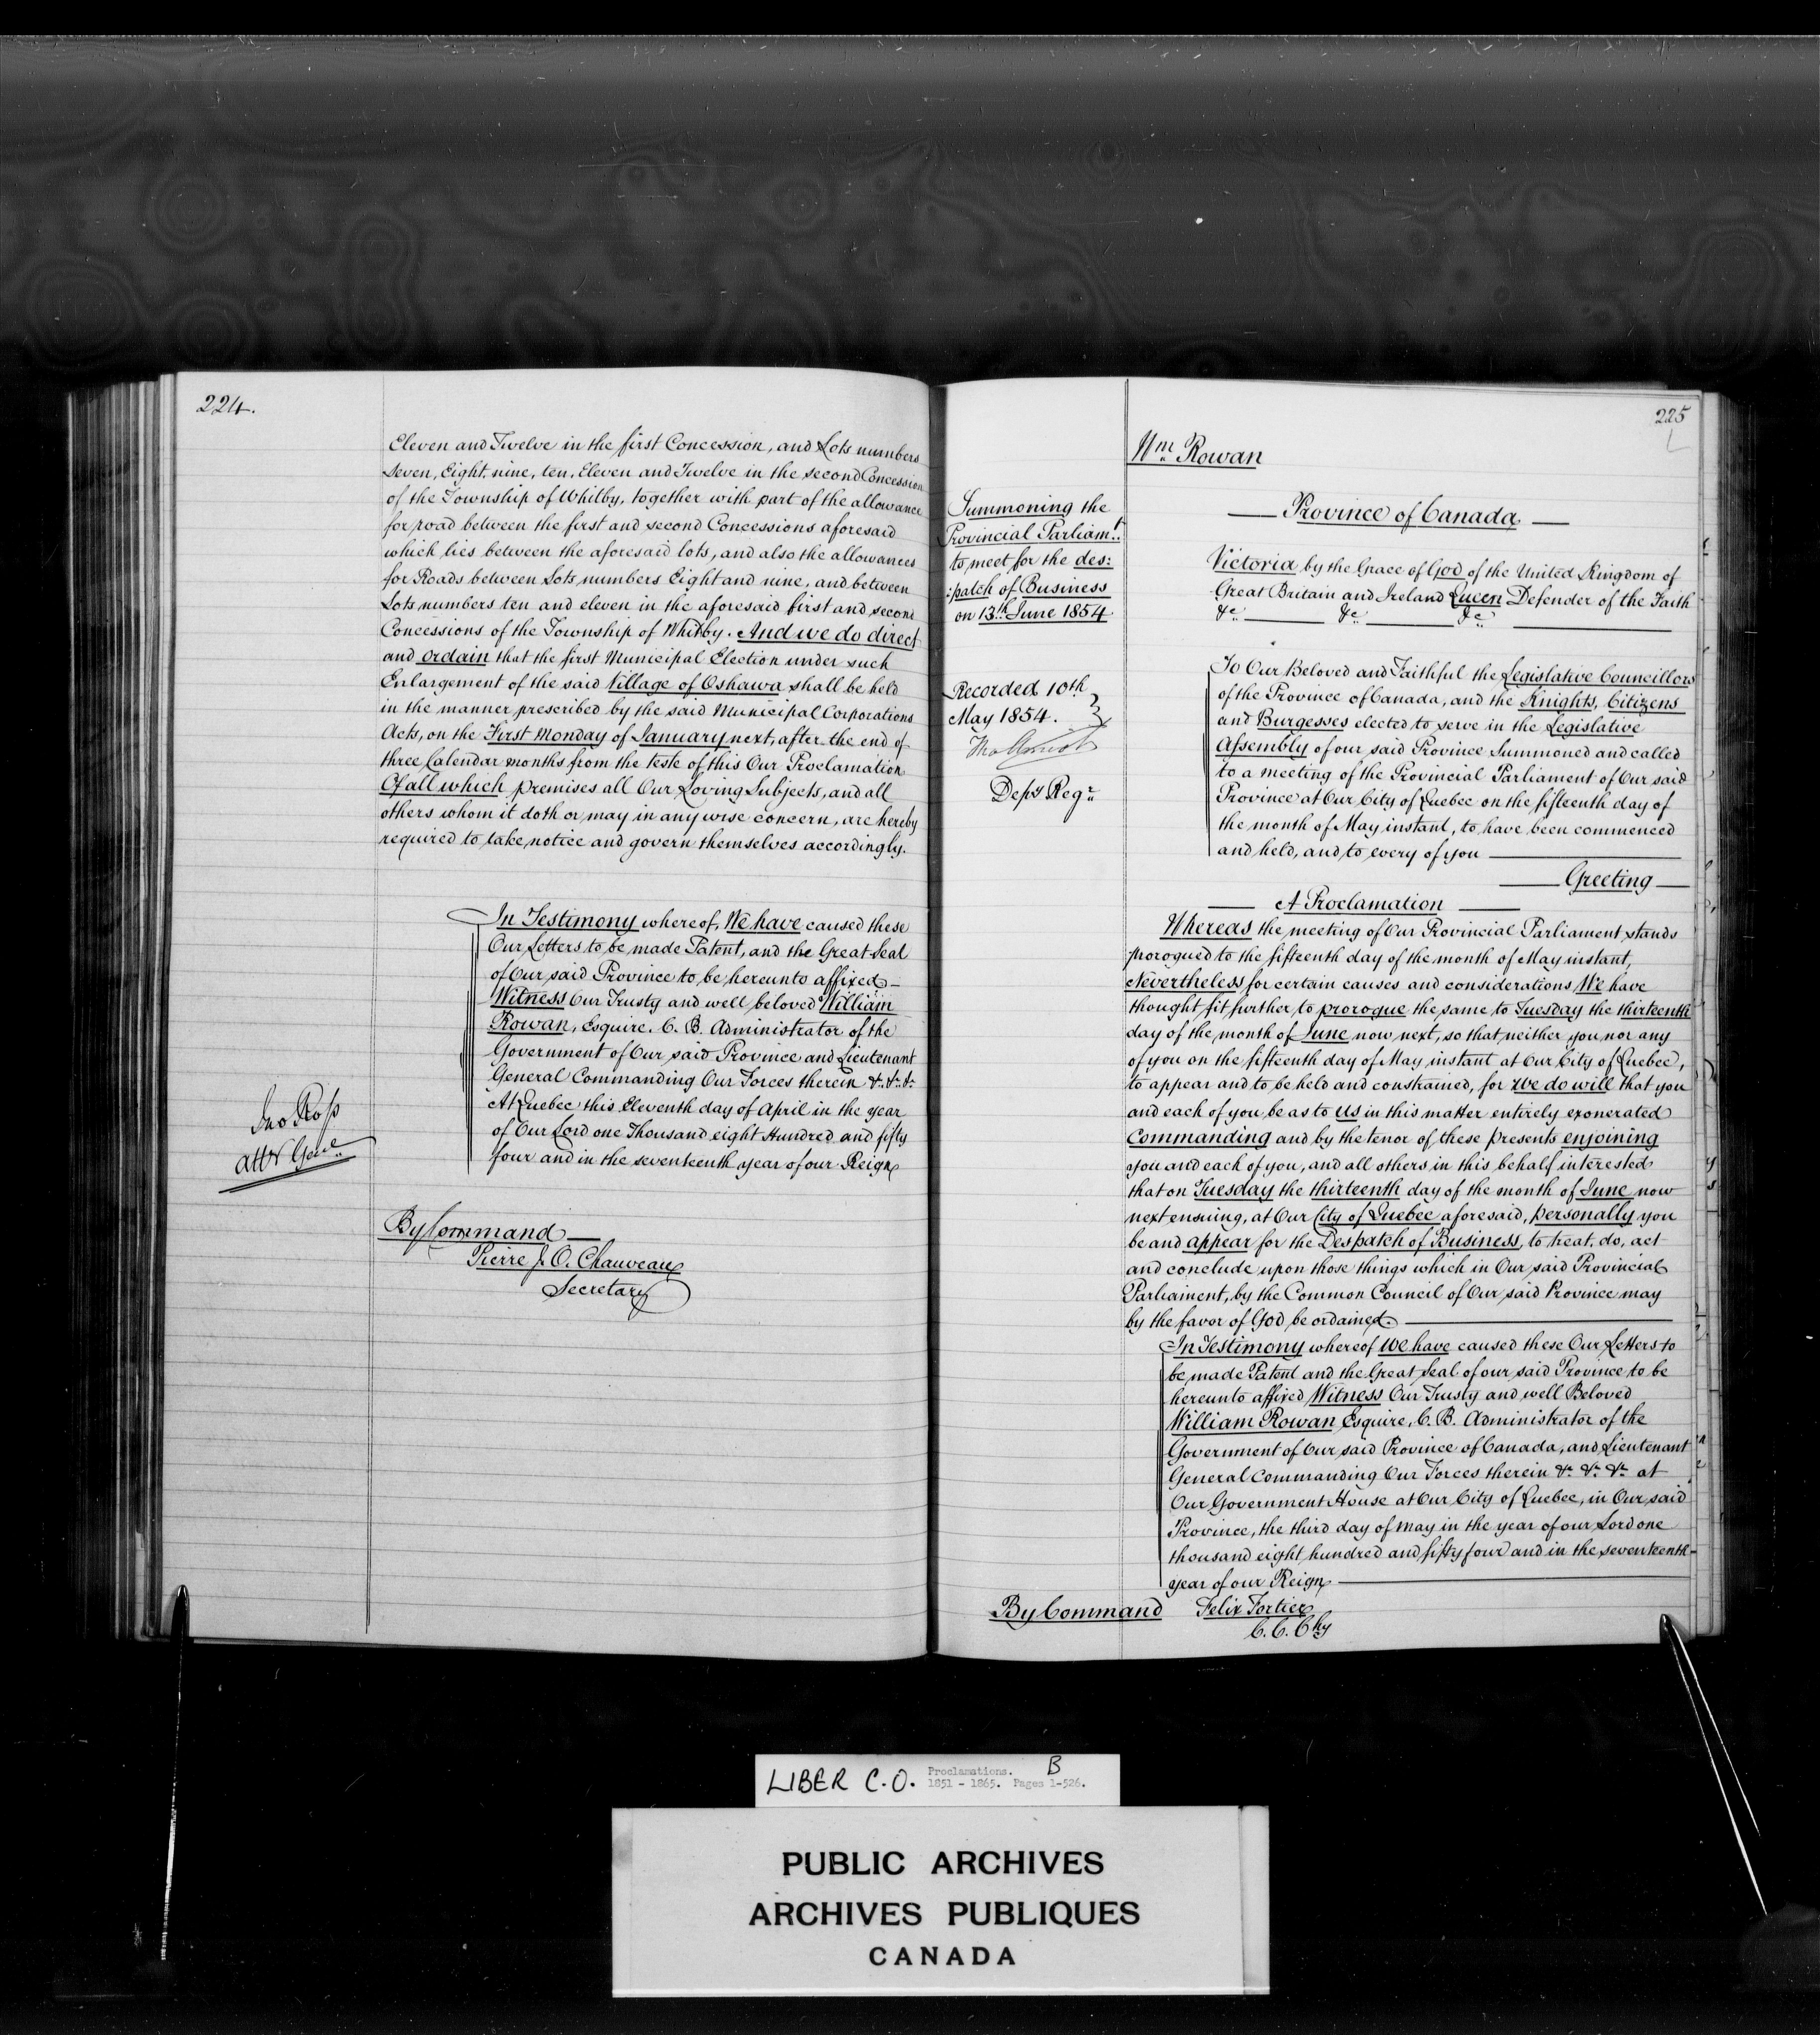 224.
Eleven and Twelve in the first Concession, and Lots numbers
Seven, Eight, nine, ten, Eleven and Twelve in the second Concession
of the Township of Whitby, together with part of the allowance
for road between the first and second Concessions aforesaid
which lies between the aforesaid lots, and also the allowances
for Roads between Lots numbers Eight and nine, and between
Lots numbers ten and eleven in the aforesaid first and second
Concessions of the Township of Whitby. And we do direct
and ordain that the first Municipal Election under such
Enlargement of the said Village of Oshawa shall be held
in the manner prescribed by the said Municipal Corporations
Acts, on the First Monday of January next, after the end of
three Calendar months from the teste of this Our Proclamation
Of all which premises all Our Loving Subjects, and all
others whom it doth or may in any wise concern, are hereby
required to take notice and govern themselves accordingly.
In Testimony whereof, We have caused these
Our Letters to be made Patent, and the Great Seal
of Our said Province to be hereunto affixed –
Witness Our Trusty and well beloved William
Rowan, Esquire. C. B. Administrator of the
Government of Our said Province and Lieutenant
General Commanding Our Forces therein &c. &c. &c.
At Quebec this Eleventh day of April in the year
of Our Lord one Thousand eight Hundred and fifty
four and in the seventeenth year of our Reign
Jno Ross
Atty Genl.
By Command –
Pierre J. O. Chauveau
Secretary
225
Wm. Rowan
Summoning the
Provincial Parliamt.
to meet for the des:
:patch of Business
on 13th June 1854
Recorded 10th
May 1854.
Depy Regr.
— Province of Canada —
Victoria by the Grace of God of the United Kingdom of
Great Britain and Ireland Queen Defender of the Faith
&c. — &c. — &c. —
To Our Beloved and Faithful the Legislative Councillors
of the Province of Canada, and the Knights, Citizens
and Burgesses elected to serve in the Legislative
Assembly of our said Province Summoned and called
to a meeting of the Provincial Parliament of Our said
Province at Our City of Quebec on the fifteenth day of
the month of May instant, to have been commenced
and held, and to every of you —
— Greeting —
— A Proclamation —
Whereas the meeting of Our Provincial Parliament stands
prorogued to the fifteenth day of the month of May instant,
Nevertheless for certain causes and considerations We have
thought fit further to prorogue the same to Tuesday the thirteenth
day of the month of June now next, so that neither you nor any
of you on the fifteenth day of May instant at Our City of Quebec,
to appear and to be held and constrained, for we do will that you
and each of you, be as to Us in this matter entirely exonerated
Commanding and by the tenor of these presents enjoining
you and each of you, and all others in this behalf interested
that on Tuesday the thirteenth day of the month of June now
next ensuing, at Our City of Quebec aforesaid, personally you
be and appear for the Despatch of Business, to treat, do, act
and conclude upon those things which in Our said Provincial
Parliament, by the Common Council of Our said Province may
by the favor of God be ordained. —
In Testimony whereof We have caused these Our Letters to
be made Patent and the Great Seal of our said Province to be
hereunto affixed Witness Our Trusty and well Beloved
William Rowan Esquire, C. B. Administrator of the
Government of Our said Province of Canada, and Lieutenant
General Commanding Our Forces therein &c. &c. &c. at
Our Government House at Our City of Quebec, in Our said
Province, the third day of May in the year of our Lord one
thousand eight hundred and fifty four and in the seventeenth
year of our Reign —
By Command Felix Fortier
C. C. Chy
LIBER C.O. Proclamations. B
1851 - 1865. Pages 1-526.
PUBLIC ARCHIVES
ARCHIVES PUBLIQUES
CANADA